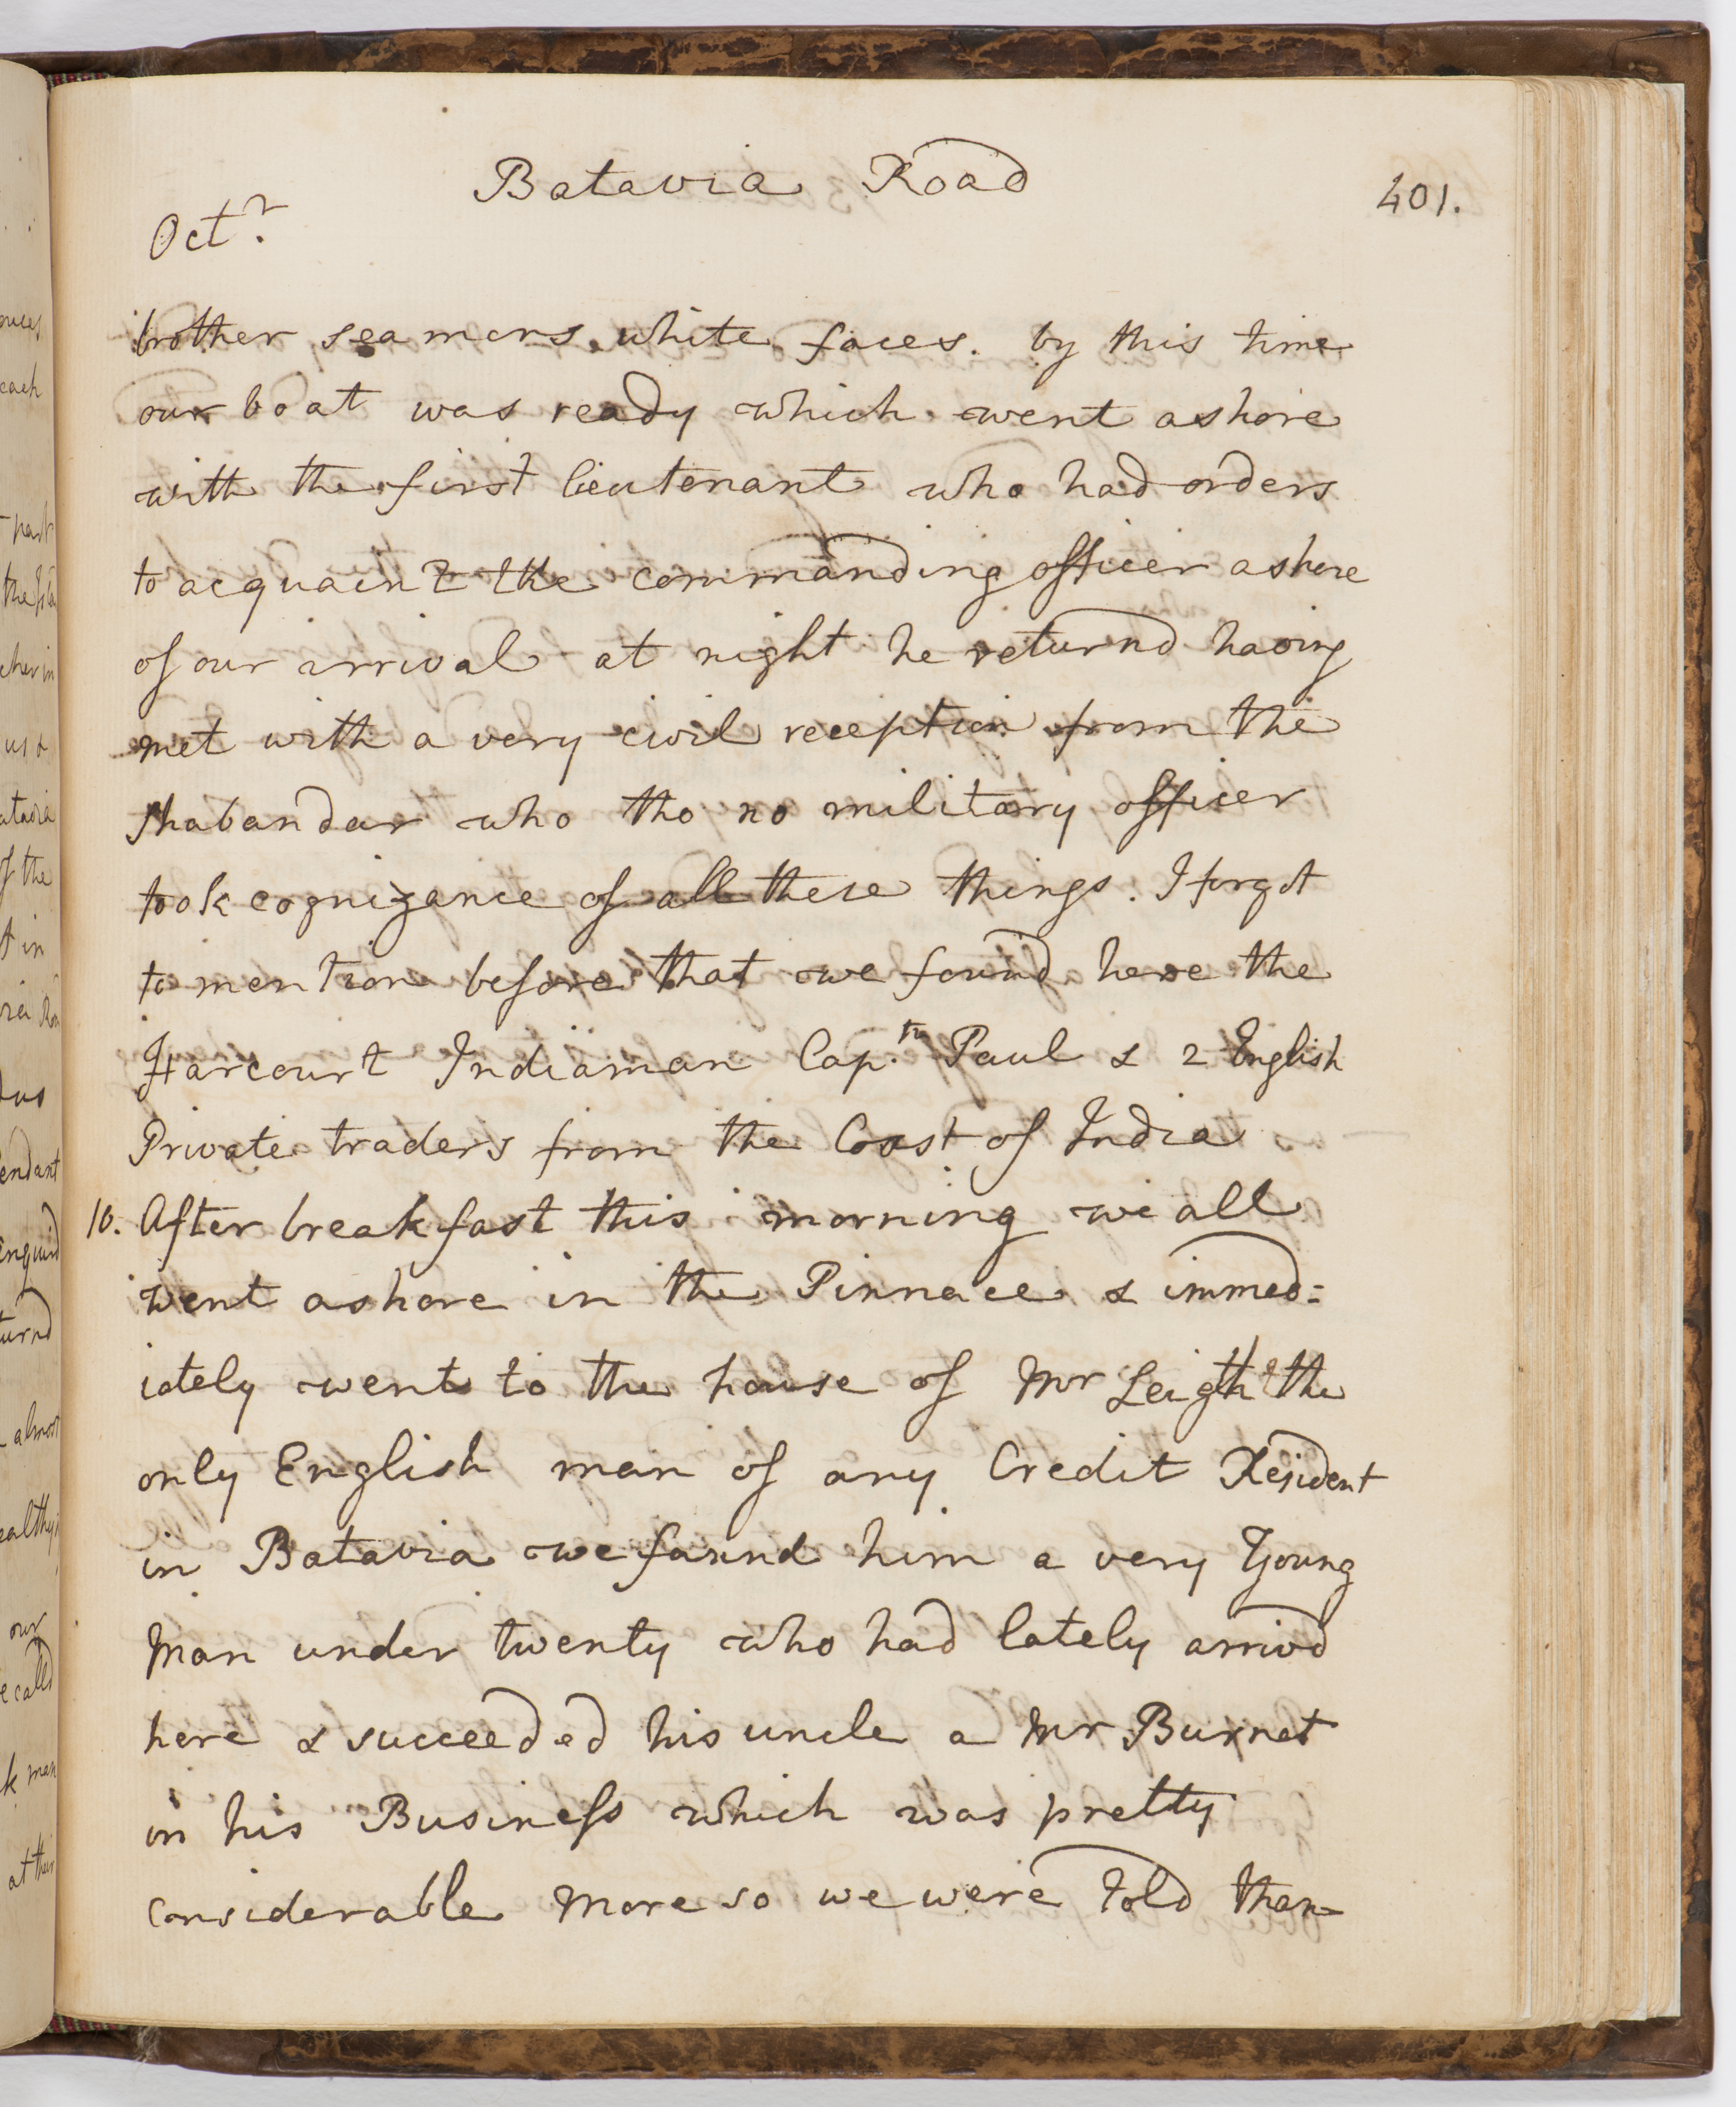 Batavia Road
401.
Octr.
brother seamens white faces. by this time
our boat was ready which went ashore
with the first lieutenant who had orders
to acquaint the commanding officer ashore
of our arrival at night he returnd having
met with a very civil reception from the
shabandar who tho no military officer
took cognizance of all these things. I forgot
to mention before that we found here the
Harcourt Indiaman Capt.n Paul & 2 English
Private traders from the Coast of India
10. After breakfast this morning we all
went ashore in the Pinnace & immed=
iately went to the house of Mr Leigth the
only English man of any Credit Resident
in Batavia we faxnd him a very Young
Man under twenty who had lately arrivd
here & succeeded his uncle a Mr Burnet
in his Business which was pretty
considerable more so we were told than